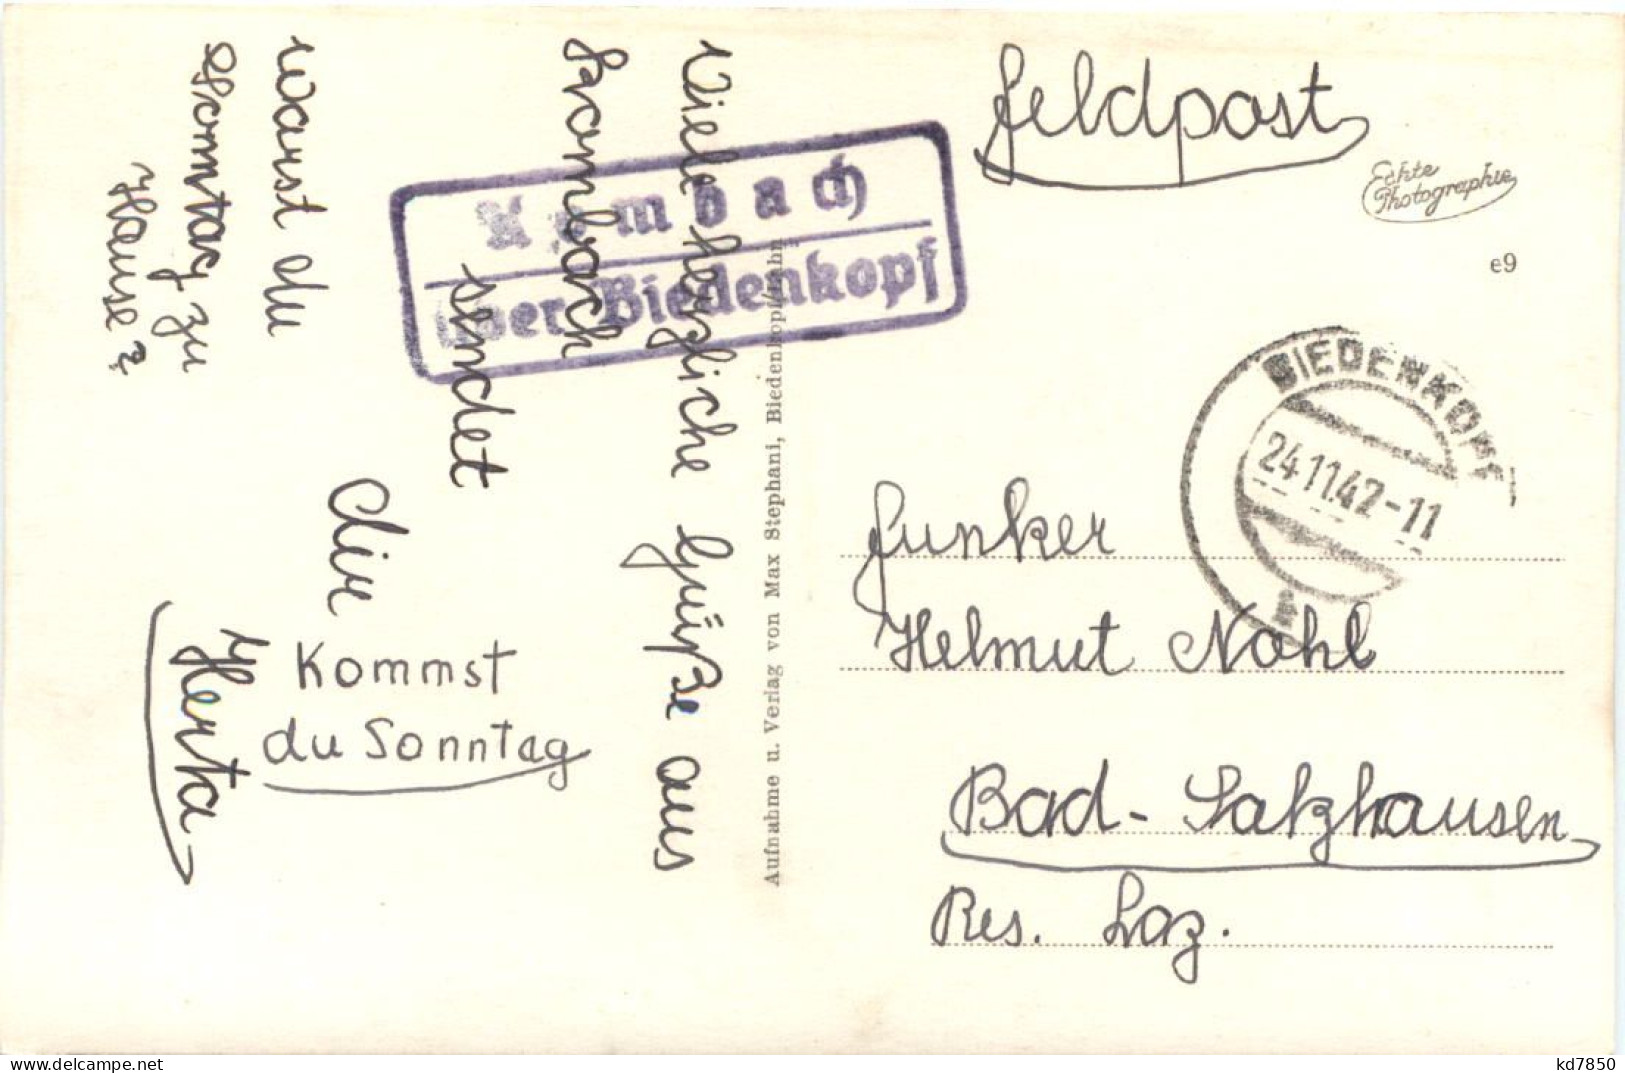 Feldpost
Echte
Photographie
e9
Kombach
über Biedenkopf
BIEDENKOPF
24.11.42-11
Viele herzliche Grüße aus
Krombach
sendet
dir
Herta
Warst du
Sonntag zu
Hause?
Kommst
du Sonntag
Aufnahme u. Verlag von Max Stephani, Biedenkopf/Lahn
Funker
Helmut Nohl
Bad-Salzhausen
Res. Laz.
kd7850